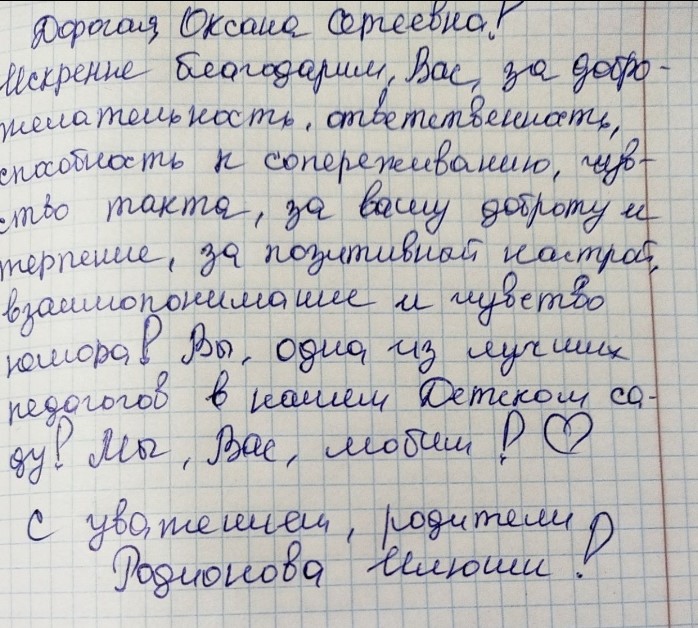 Дорогая, Оксана Сергеевна!
Искренне благодарим, Вас, за добро-
желательность, ответственность,
способность к сопереживанию, чув-
ство такта, за вашу доброту и
терпение, за позитивной настрой,
взаимопонимание и чувство
юмора! Вы, одна из лучших
педагогов в нашем Детском са-
ду! Мы, Вас, любим! ♡
С уважением, родители
Родионова Илюши!